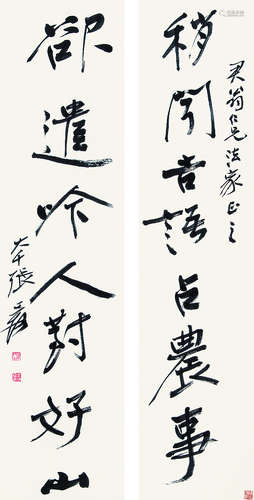 君翁仁兄法家正之
稍聞吉語占農事
欲遣吟人對好山
大千張爰